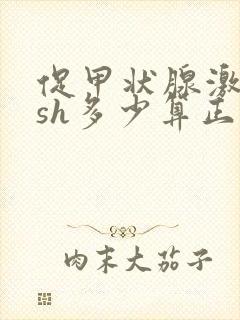 促甲状腺激
sh多少算正
肉末大茄子